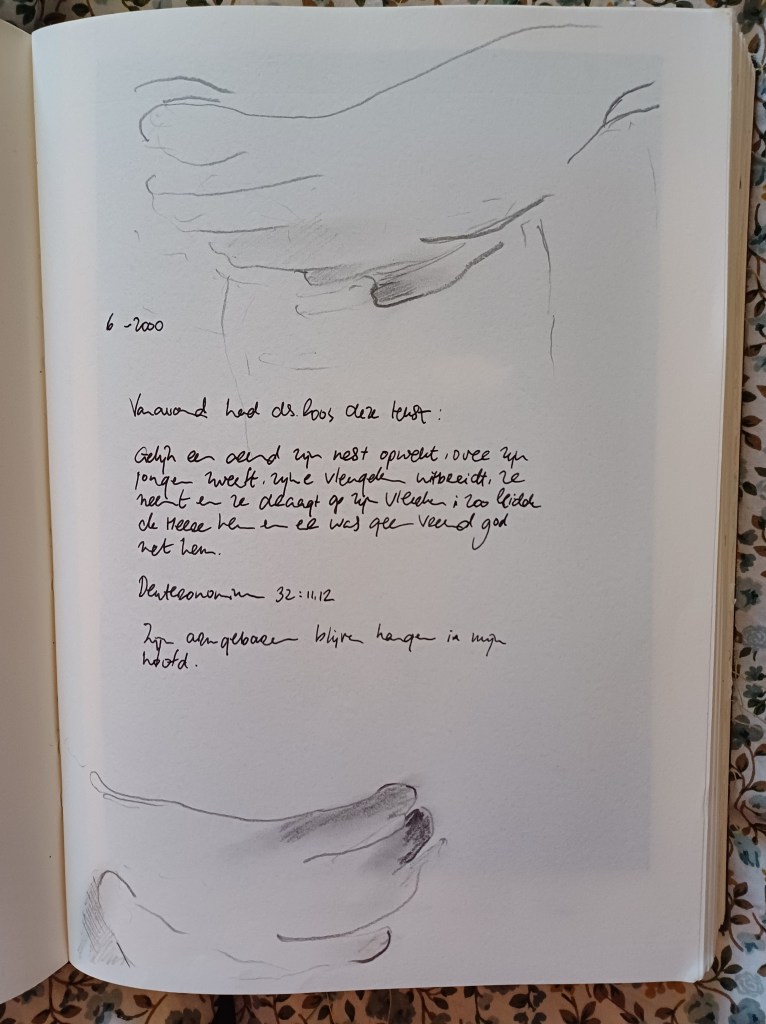 6 - 2000
Vanavond had ds. Roos deze tekst:
Gelijk een arend zijn nest opwekt, over zijn
jongen zweeft, zijne vleugelen uitbreidt, ze
neemt en ze draagt op zijn vlerken; zoo leidde
de Heere hem en er was geen vreemd god
met hem.
Deuteronomium 32:11,12
Zijn armgebaren blijven hangen in mijn
hoofd.